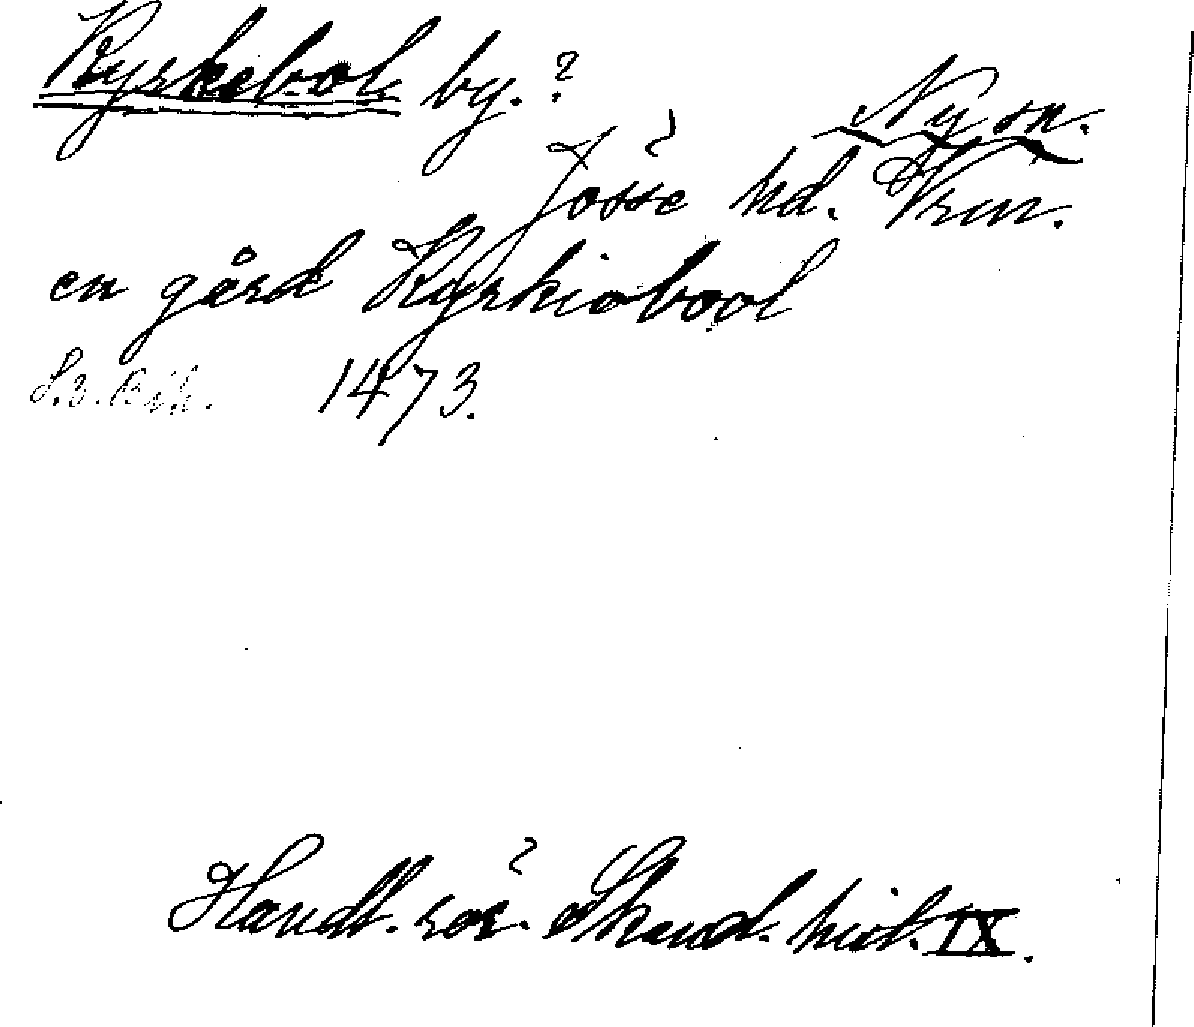 Kyrkebol by. ?
Ny sn.
Jösse hd. Vrm.
en gård Kyrkiobool
1473.
Handl. rör. Skand. hist. IX.